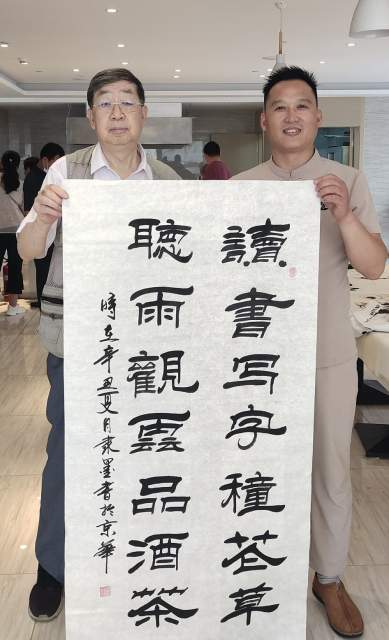 讀書写字種花草
聽雨觀雲品酒茶
時在辛丑夏月墨書於京華